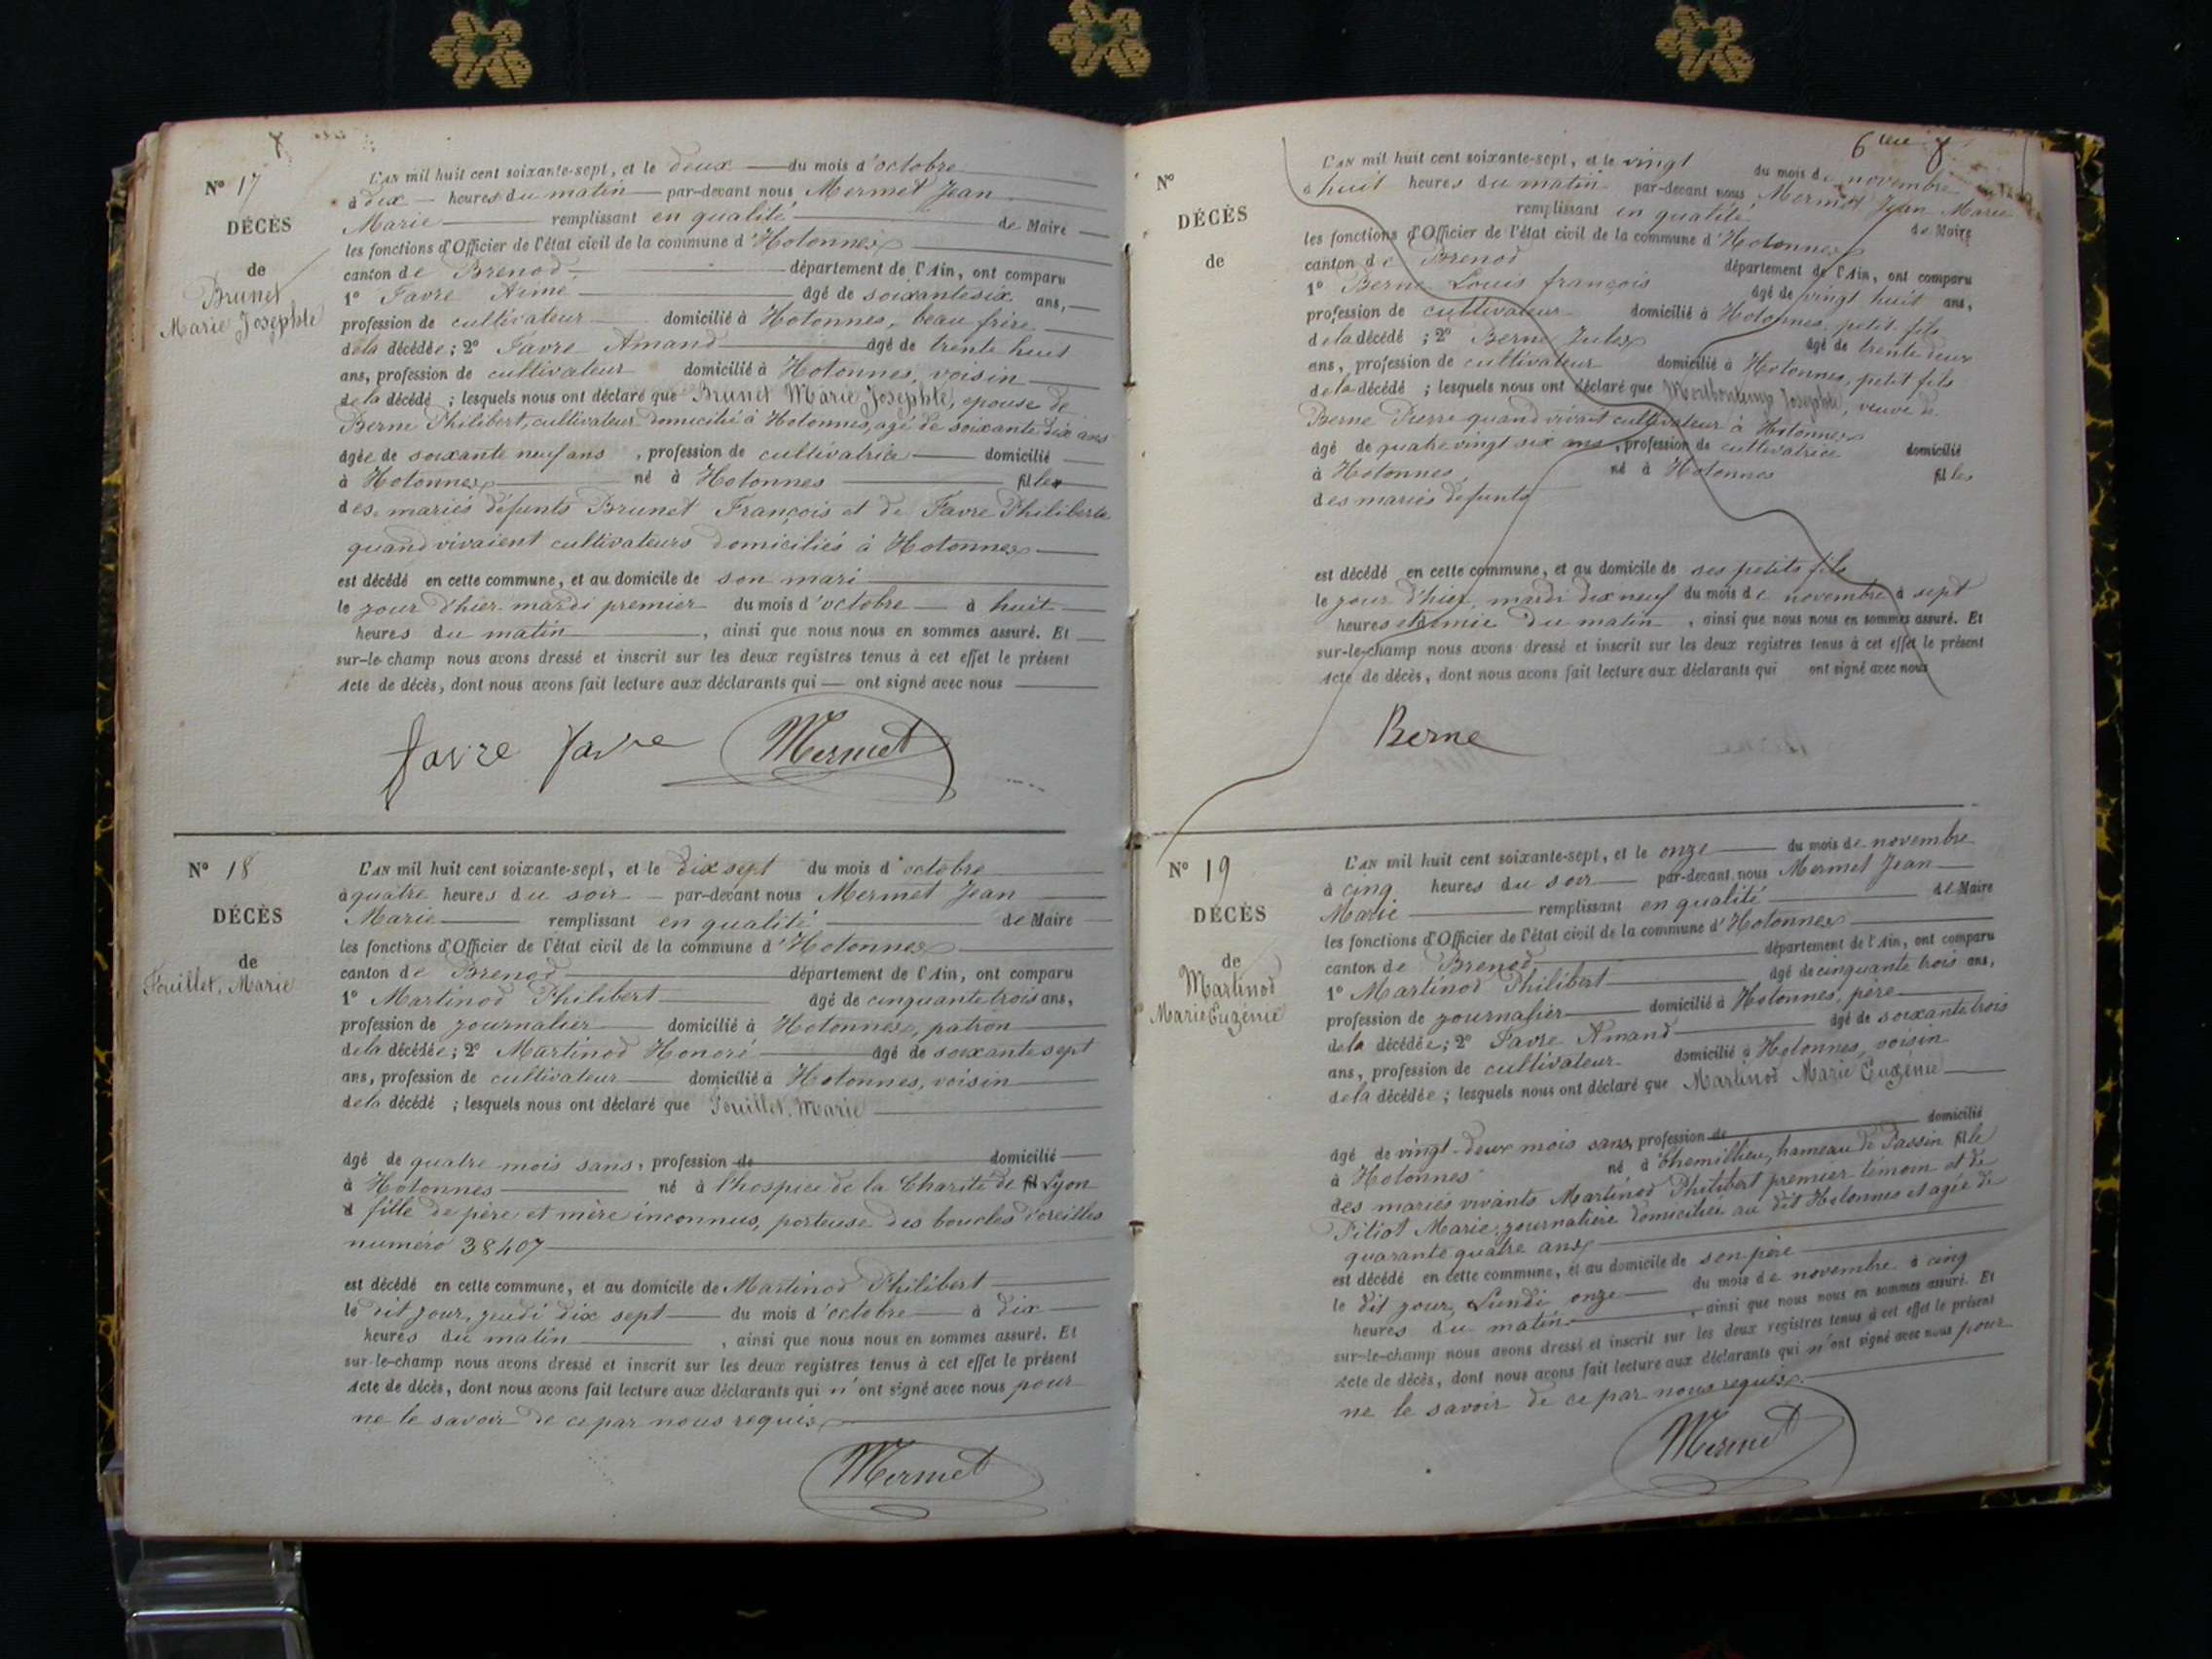 Nº 17
DÉCÈS
de
Brunet
Marie Josephte
L'AN mil huit cent soixante-sept, et le deux du mois d'octobre
à dix heures du matin par-devant nous Mermet Jean
Marie remplissant en qualité de Maire
les fonctions d'Officier de l'état civil de la commune d'Hotonnes
canton de Brenod département de l'Ain, ont comparu
1º Favre Aimé âgé de soixante six ans,
profession de cultivateur domicilié à Hotonnes, beau frère
de la décédée; 2º Favre Amand âgé de trente huit
ans, profession de cultivateur domicilié à Hotonnes, voisin
de la décédé ; lesquels nous ont déclaré que Brunet Marie Josephte, epouse de
Berne Philibert, cultivateur domicilié à Hotonnes, agé de soixante dix ans
âgée de soixante neuf ans , profession de cultivatrice domicilié
à Hotonnes né à Hotonnes fille
des mariés défunts Brunet François et de Favre Philiberte
quand vivaient cultivateurs domiciliés à Hotonnes
est décédé en cette commune, et au domicile de son mari
le jour d'hier mardi premier du mois d'octobre à huit
heures du matin , ainsi que nous nous en sommes assuré. Et
sur-le-champ nous avons dressé et inscrit sur les deux registres tenus à cet effet le présent
Acte de décès, dont nous avons fait lecture aux déclarants qui ont signé avec nous
favre favre Mermet
Nº 18
DÉCÈS
de
Fouillet, Marie
L'AN mil huit cent soixante-sept, et le dix sept du mois d'octobre
à quatre heures du soir par-devant nous Mermet Jean
Marie remplissant en qualité de Maire
les fonctions d'Officier de l'état civil de la commune d'Hotonnes
canton de Brenod département de l'Ain, ont comparu
1º Martinod Philibert âgé de cinquante trois ans,
profession de journalier domicilié à Hotonnes, patron
de la décédée; 2º Martinod Honoré âgé de soixante sept
ans, profession de cultivateur domicilié à Hotonnes, voisin
de la décédé ; lesquels nous ont déclaré que Fouillet, Marie
âgé de quatre mois sans, profession de domicilié
à Hotonnes né à l'hospice de la Charité de Lyon
fille de père et mère inconnus, porteuse des boucles d'oreilles
numéro 38407
est décédé en cette commune, et au domicile de Martinod Philibert
le dit jour, jeudi dix sept du mois d'octobre à dix
heures du matin , ainsi que nous nous en sommes assuré. Et
sur-le-champ nous avons dressé et inscrit sur les deux registres tenus à cet effet le présent
Acte de décès, dont nous avons fait lecture aux déclarants qui n'ont signé avec nous pour
ne le savoir de ce par nous requis
Mermet
Nº
DÉCÈS
de
L'AN mil huit cent soixante-sept, et le vingt du mois de novembre
à huit heures du matin par-devant nous Mermet Jean Marie
remplissant en qualité de Maire
les fonctions d'Officier de l'état civil de la commune d'Hotonnes
canton de Brenod département de l'Ain, ont comparu
1º Berne Louis françois âgé de vingt huit ans,
profession de cultivateur domicilié à Hotonnes, petit fils
de la décédé ; 2º Berne Jules âgé de trente deux
ans, profession de cultivateur domicilié à Hotonnes, petit fils
de la décédé ; lesquels nous ont déclaré que Josephte, veuve de
Berne Pierre quand vivait cultivateur à Hotonnes
âgé de quatre vingt six ans , profession de cultivatrice domicilié
à Hotonnes né à Hotonnes filles
des mariés défunts
est décédé en cette commune, et au domicile de ses petits fils
le jour d'hier, mardi dix neuf du mois de novembre à sept
heures et demie du matin , ainsi que nous nous en sommes assuré. Et
sur-le-champ nous avons dressé et inscrit sur les deux registres tenus à cet effet le présent
Acte de décès, dont nous avons fait lecture aux déclarants qui ont signé avec nous
Berne
Nº 19
DÉCÈS
de
Martinod
Marie Eugénie
L'AN mil huit cent soixante-sept, et le onze du mois de novembre
à cinq heures du soir par-devant nous Mermet Jean
Marie remplissant en qualité de Maire
les fonctions d'Officier de l'état civil de la commune d'Hotonnes
canton de Brenod département de l'Ain, ont comparu
1º Martinod Philibert âgé de cinquante trois ans,
profession de journalier domicilié à Hotonnes, père
de la décédée; 2º Favre Amand âgé de soixante trois
ans, profession de cultivateur domicilié à Hotonnes, voisin
de la décédée; lesquels nous ont déclaré que Martinod Marie Eugénie
âgé de vingt-deux mois sans, profession de domicilié
à Hotonnes né à Chemillieu, hameau de Passin fille
des mariés vivants Martinod Philibert premier témoin et de
Pitiot Marie, journalière domiciliée au dit Hotonnes et agée de
quarante quatre ans
est décédé en cette commune, et au domicile de son père
le dit jour, Lundi onze du mois de novembre à cinq
heures du matin , ainsi que nous nous en sommes assuré. Et
sur-le-champ nous avons dressé et inscrit sur les deux registres tenus à cet effet le présent
Acte de décès, dont nous avons fait lecture aux déclarants qui n'ont signé avec nous pour
ne le savoir de ce par nous requis.
Mermet